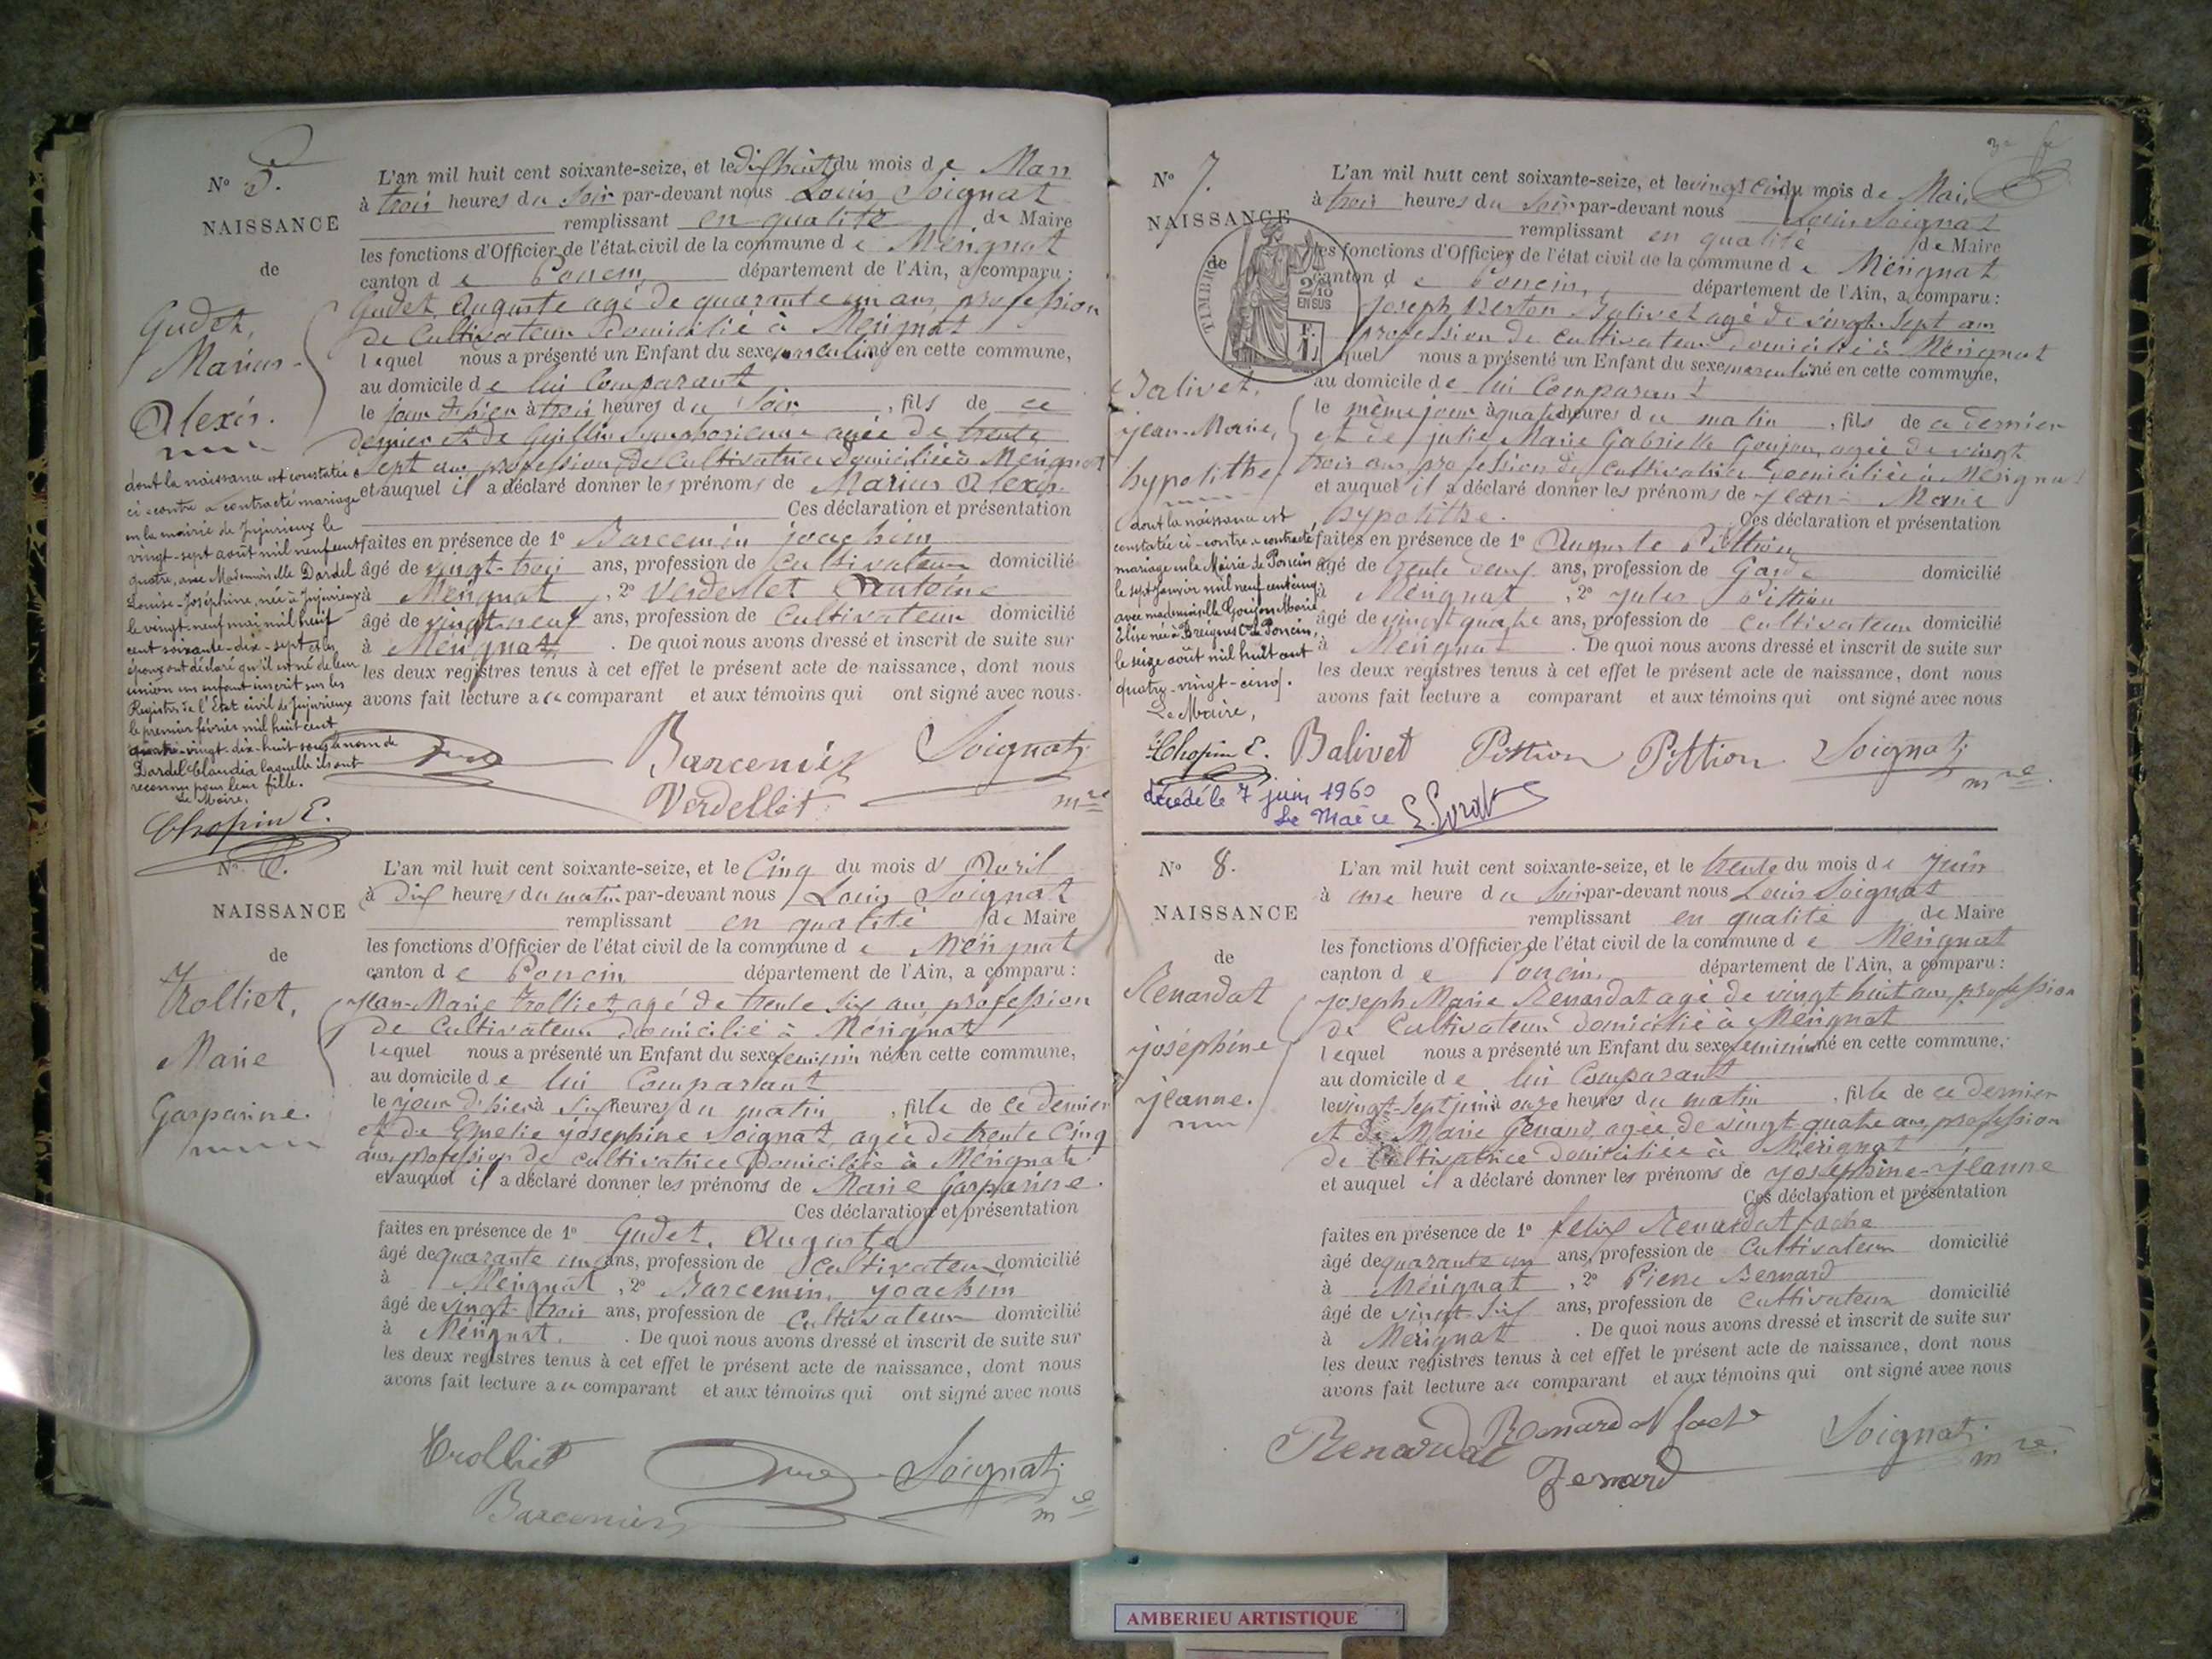 N° 5.
NAISSANCE
de
Gudet,
Marius-
Alexis.
dont la naissance est constatée
ci-contre a contracté mariage
en la mairie de Jujurieux le
vingt-sept août mil neuf cent
quatre, avec Mademoiselle Dardel
Louise-Joséphine, née à Jujurieux
le vingt-neuf mai mil huit
cent soixante-dix-sept et les
époux ont déclaré qu'il est né de leur
union un enfant inscrit sur les
Registres de l'Etat civil de Jujurieux
le premier février mil huit cent
quatre-vingt-dix-huit sous le nom de
Dardel Claudia laquelle ils ont
reconnu pour leur fille.
Le Maire,
Chopin E.
L'an mil huit cent soixante-seize, et le dix huit du mois de Mars
à trois heures du soir par-devant nous Louis Soignat
remplissant en qualité de Maire
les fonctions d'Officier de l'état civil de la commune de Mérignat
canton de Poncin département de l'Ain, a comparu :
Gudet, Auguste agé de quarante un ans, profession
de Cultivateur domicilié à Mérignat
lequel nous a présenté un Enfant du sexe masculin né en cette commune,
au domicile de lui Comparant
le jour d'hier à trois heures du soir, fils de ce
dernier et de Guillin Symphorienne agée de trente
sept ans profession de Cultivatrice domiciliée à Mérignat
et auquel il a déclaré donner les prénoms de Marius Alexis.
Ces déclaration et présentation
faites en présence de 1° Barcemin joachim
âgé de vingt-trois ans, profession de Cultivateur domicilié
à Mérignat, 2° Verdellet Antoine
âgé de vingt-neuf ans, profession de Cultivateur domicilié
à Mérignat. De quoi nous avons dressé et inscrit de suite sur
les deux registres tenus à cet effet le présent acte de naissance, dont nous
avons fait lecture au comparant et aux témoins qui ont signé avec nous.
Barcemin Soignat
Verdellet mre
N° 6.
NAISSANCE
de
Trolliet,
Marie
Gasparine.
L'an mil huit cent soixante-seize, et le Cinq du mois d'Avril
à dix heures du matin par-devant nous Louis Soignat
remplissant en qualité de Maire
les fonctions d'Officier de l'état civil de la commune de Mérignat
canton de Poncin département de l'Ain, a comparu :
Jean-Marie Trolliet, agé de trente six ans, profession
de Cultivateur domicilié à Mérignat
lequel nous a présenté un Enfant du sexe feminin né en cette commune,
au domicile de lui Comparant
le jour d'hier à six heures du matin, fille de ce dernier
et de Emelie josephine Soignat, agée de trente Cinq
ans, profession de cultivatrice domiciliée à Mérignat
et auquel il a déclaré donner les prénoms de Marie Gasparine.
Ces déclaration et présentation
faites en présence de 1° Gudet, Auguste
âgé de quarante un ans, profession de Cultivateur domicilié
à Mérignat, 2° Barcemin, joachim
âgé de vingt-trois ans, profession de Cultivateur domicilié
à Mérignat. De quoi nous avons dressé et inscrit de suite sur
les deux registres tenus à cet effet le présent acte de naissance, dont nous
avons fait lecture au comparant et aux témoins qui ont signé avec nous
Trolliet Soignat
Barcemin mre
N° 7.
NAISSANCE
de
TIMBRE
2/10
EN SUS
Balivet,
jean-Marie,
hypolithe
dont la naissance est
constatée ci-contre a contracté
mariage en la Mairie de Poncin
le sept janvier mil neuf cent cinq
avec mademoiselle Goujon Marie
Elise née à Breignes Cne de Poncin,
le seize août mil huit cent
quatre-vingt-cinq.
Le Maire,
Chopin E.
L'an mil huit cent soixante-seize, et le vingt cinq du mois de Mai,
à trois heures du soir par-devant nous Louis Soignat
remplissant en qualité de Maire
les fonctions d'Officier de l'état civil de la commune de Mérignat
canton de Poncin, département de l'Ain, a comparu :
Joseph Berton Balivet agé de vingt-sept ans
profession de cultivateur domicilié à Mérignat
quel nous a présenté un Enfant du sexe masculin né en cette commune,
au domicile de lui Comparant
le même jour à quatre heures du matin, fils de ce dernier
et de julie Marie Gabrielle Goujon, agée de vingt
trois ans profession de Cultivatrice domiciliée à Mérignat
et auquel il a déclaré donner les prénoms de jean-Marie
hypolithe. Ces déclaration et présentation
faites en présence de 1° Auguste Pittion
âgé de trente deux ans, profession de Garde domicilié
à Mérignat, 2° jules Pittion
âgé de vingt quatre ans, profession de Cultivateur domicilié
à Mérignat. De quoi nous avons dressé et inscrit de suite sur
les deux registres tenus à cet effet le présent acte de naissance, dont nous
avons fait lecture a comparant et aux témoins qui ont signé avec nous
Balivet Pittion Pittion Soignat
mre.
décédé le 7 juin 1960
Le Maire
N° 8.
NAISSANCE
de
Renardat
joséphine
jeanne.
L'an mil huit cent soixante-seize, et le trente du mois de juin
à une heure du soir par-devant nous Louis Soignat
remplissant en qualité de Maire
les fonctions d'Officier de l'état civil de la commune de Mérignat
canton de Poncin. département de l'Ain, a comparu :
joseph Marie Renardat agé de vingt huit ans, profession
de Cultivateur domicilié à Mérignat
lequel nous a présenté un Enfant du sexe feminin né en cette commune,
au domicile de lui Comparant
le vingt-sept juin à onze heures du matin, fille de ce dernier
et de Marie Genand, agée de vingt-quatre ans, profession
de Cultivatrice domiciliée à Mérignat
et auquel il a déclaré donner les prénoms de josephine-jeanne
Ces déclaration et présentation
faites en présence de 1° felix Renardat fache
âgé de quarante un ans, profession de Cultivateur domicilié
à Mérignat, 2° Pierre Bernard
âgé de vingt-six ans, profession de Cultivateur domicilié
à Mérignat. De quoi nous avons dressé et inscrit de suite sur
les deux registres tenus à cet effet le présent acte de naissance, dont nous
avons fait lecture au comparant et aux témoins qui ont signé avec nous
Renardat Renardat fache Soignat
Bernard mre.
AMBERIEU ARTISTIQUE